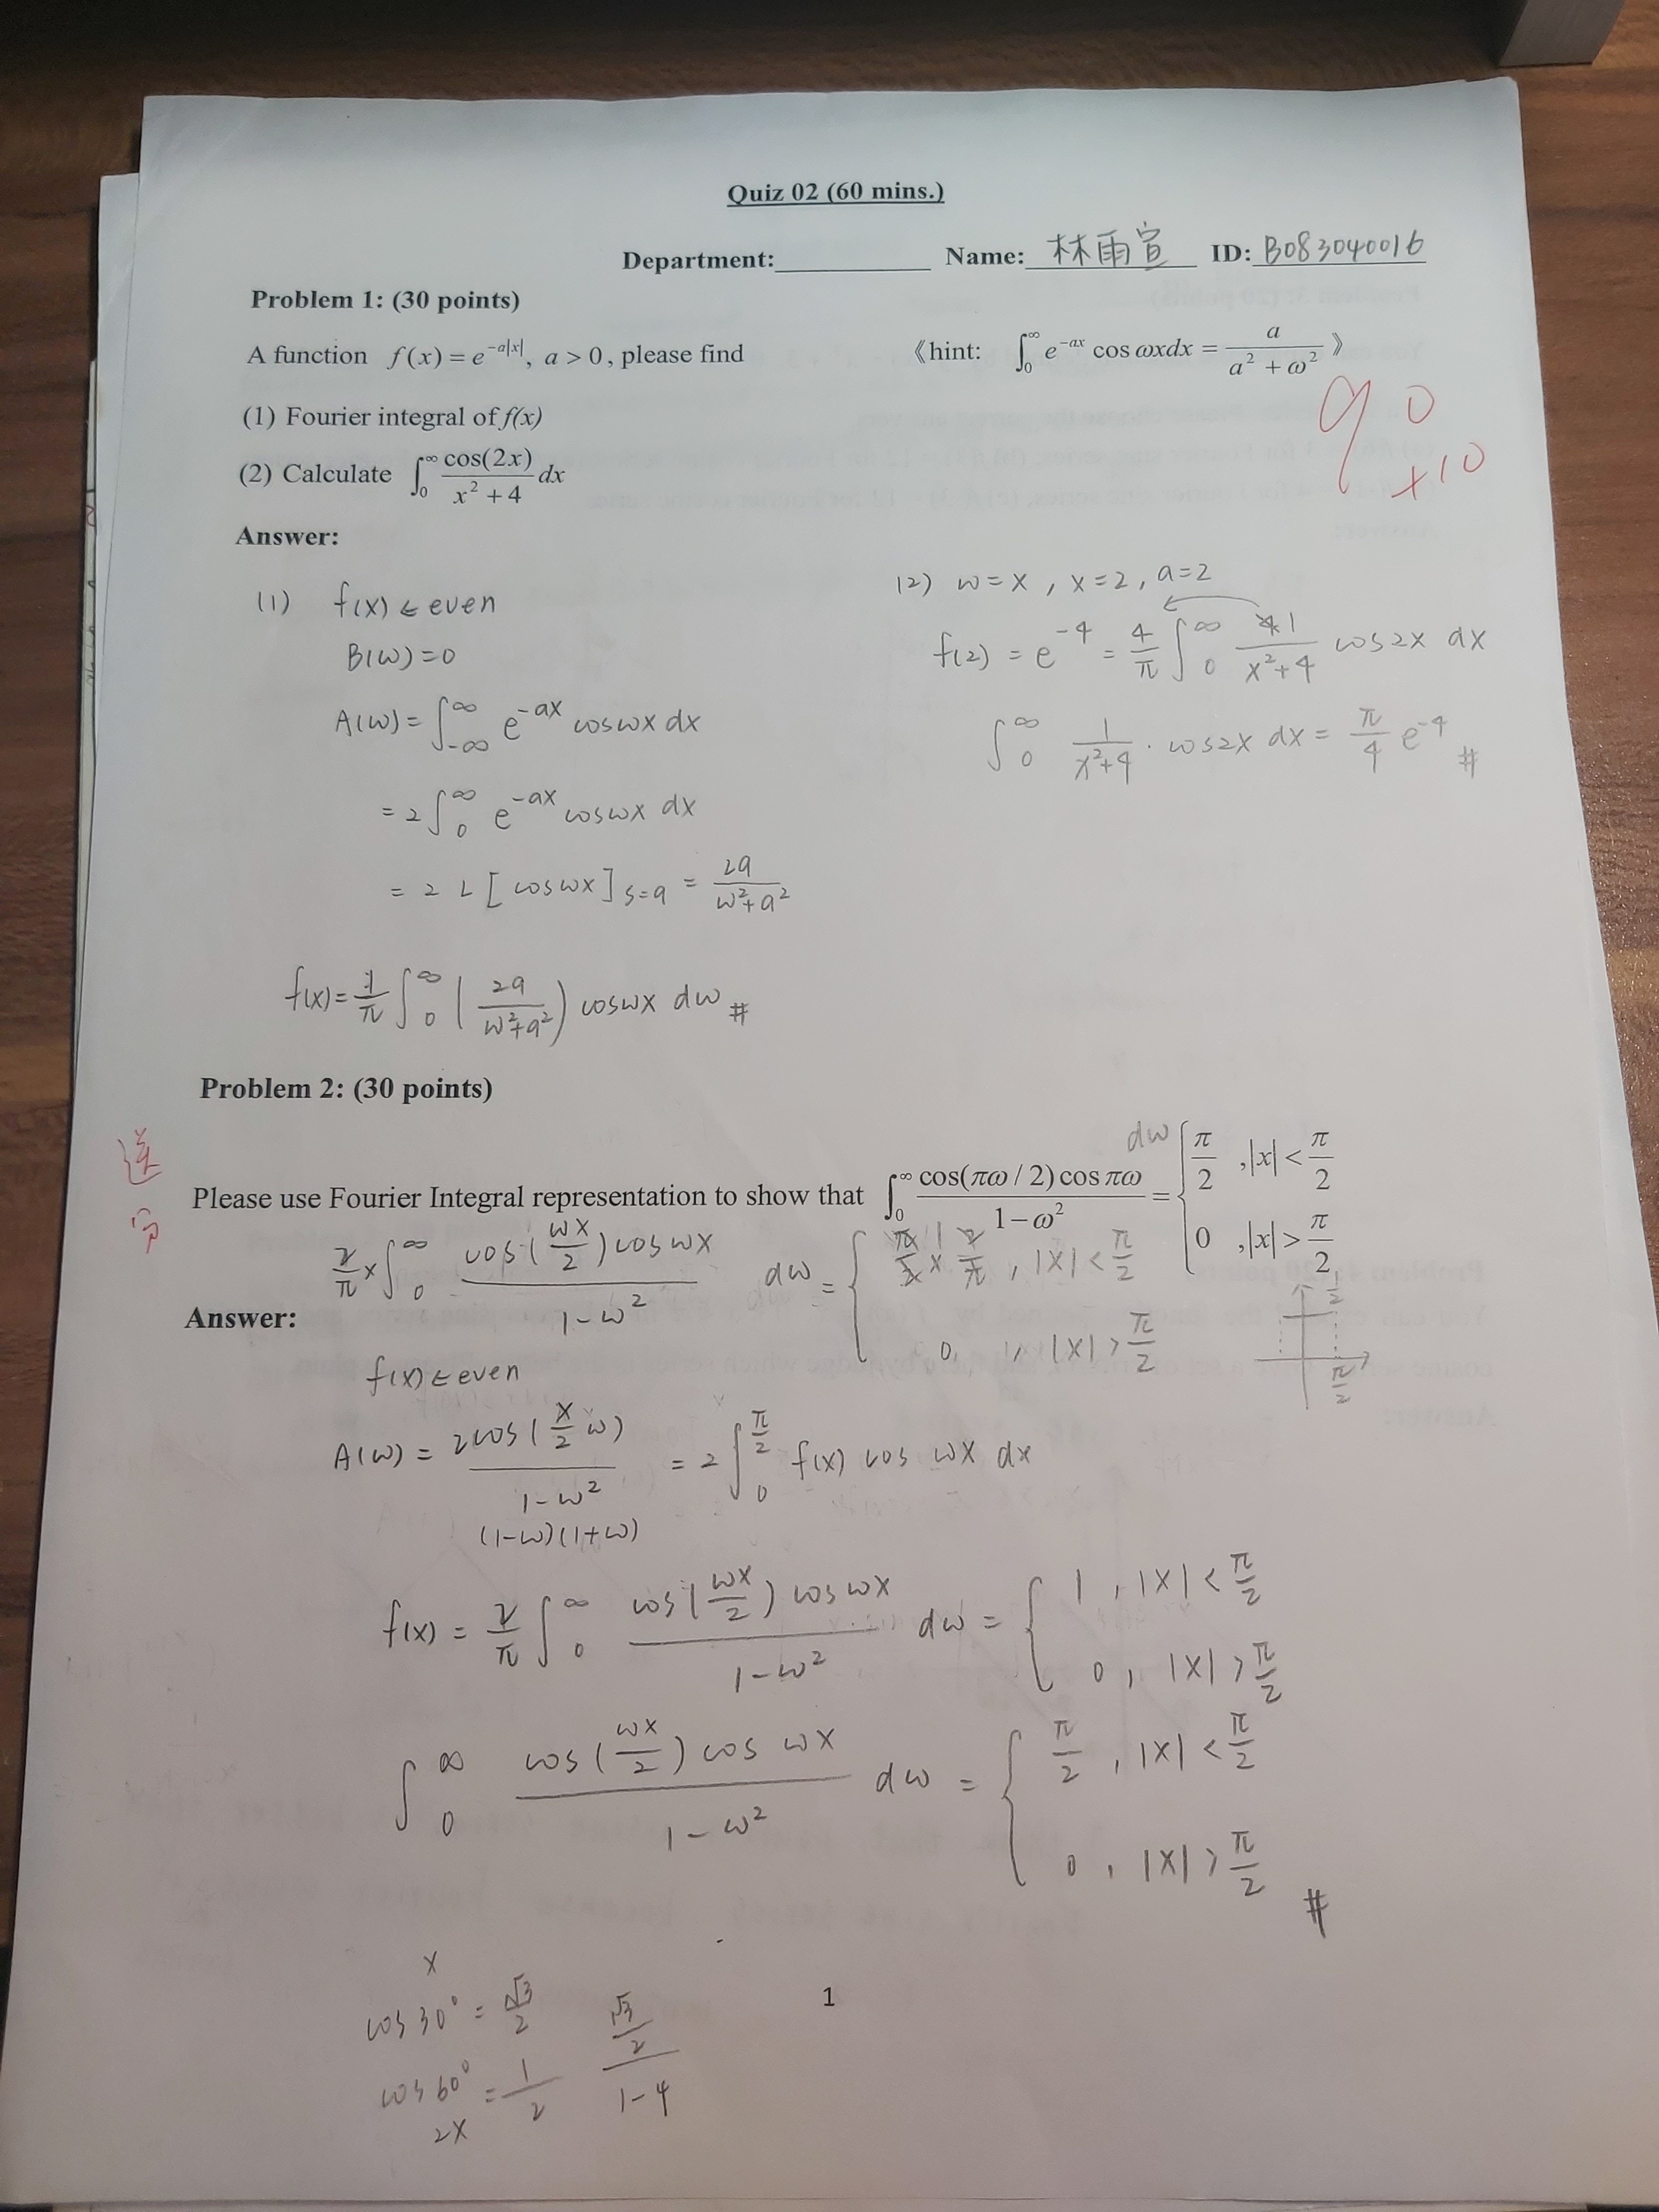 Quiz 02 (60 mins.)
Department:__________ Name: 林雨宣 ID: B083040016
Problem 1: (30 points)
A function f(x) = e^{-a|x|}, a > 0, please find 《hint: ∫_0^∞ e^{-ax} cos ωxdx = a/(a² + ω²) 》
90
+10
(1) Fourier integral of f(x)
(2) Calculate ∫_0^∞ cos(2x)/(x² + 4) dx
Answer:
(1) f(x) ∈ even
B(ω)=0
A(ω) = ∫_{-∞}^∞ e^{-ax} cosωx dx
= 2∫_0^∞ e^{-ax} cosωx dx
= 2 L [cosωx]_{s=a} = 2a/(ω²+a²)
f(x) = 1/π ∫_0^∞ (2a/(ω²+a²)) cosωx dω #
(2) ω = x , x = 2 , a = 2
f(2) = e^{-4} = 4/π ∫_0^∞ 1/(x²+4) cos2x dx
∫_0^∞ 1/(x²+4) · cos2x dx = π/4 e^{-4} #
Problem 2: (30 points)
送
分
Please use Fourier Integral representation to show that ∫_0^∞ cos(πω / 2) cos πω/(1-ω²) dω = { π/2 ,|x| < π/2
0 ,|x| > π/2
2/π × ∫_0^∞ cos(ωx/2) cosωx/(1-ω²) dω = { π/2 × 2/π , |x| < π/2
0, , |x| > π/2
1/2
π/2
Answer:
f(x) ∈ even
A(ω) = 2cos(x/2 ω)/(1-ω²) = 2∫_0^{π/2} f(x) cos ωx dx
(1-ω)(1+ω)
f(x) = 2/π ∫_0^∞ cos(ωx/2) cosωx/(1-ω²) dω = { 1 , |x| < π/2
0 , |x| > π/2
∫_0^∞ cos(ωx/2) cos ωx/(1-ω²) dω = { π/2 , |x| < π/2
0 , |x| > π/2 #
x
cos30° = √3/2
cos60° = 1/2
2x
(√3/2)/(1-4)
1